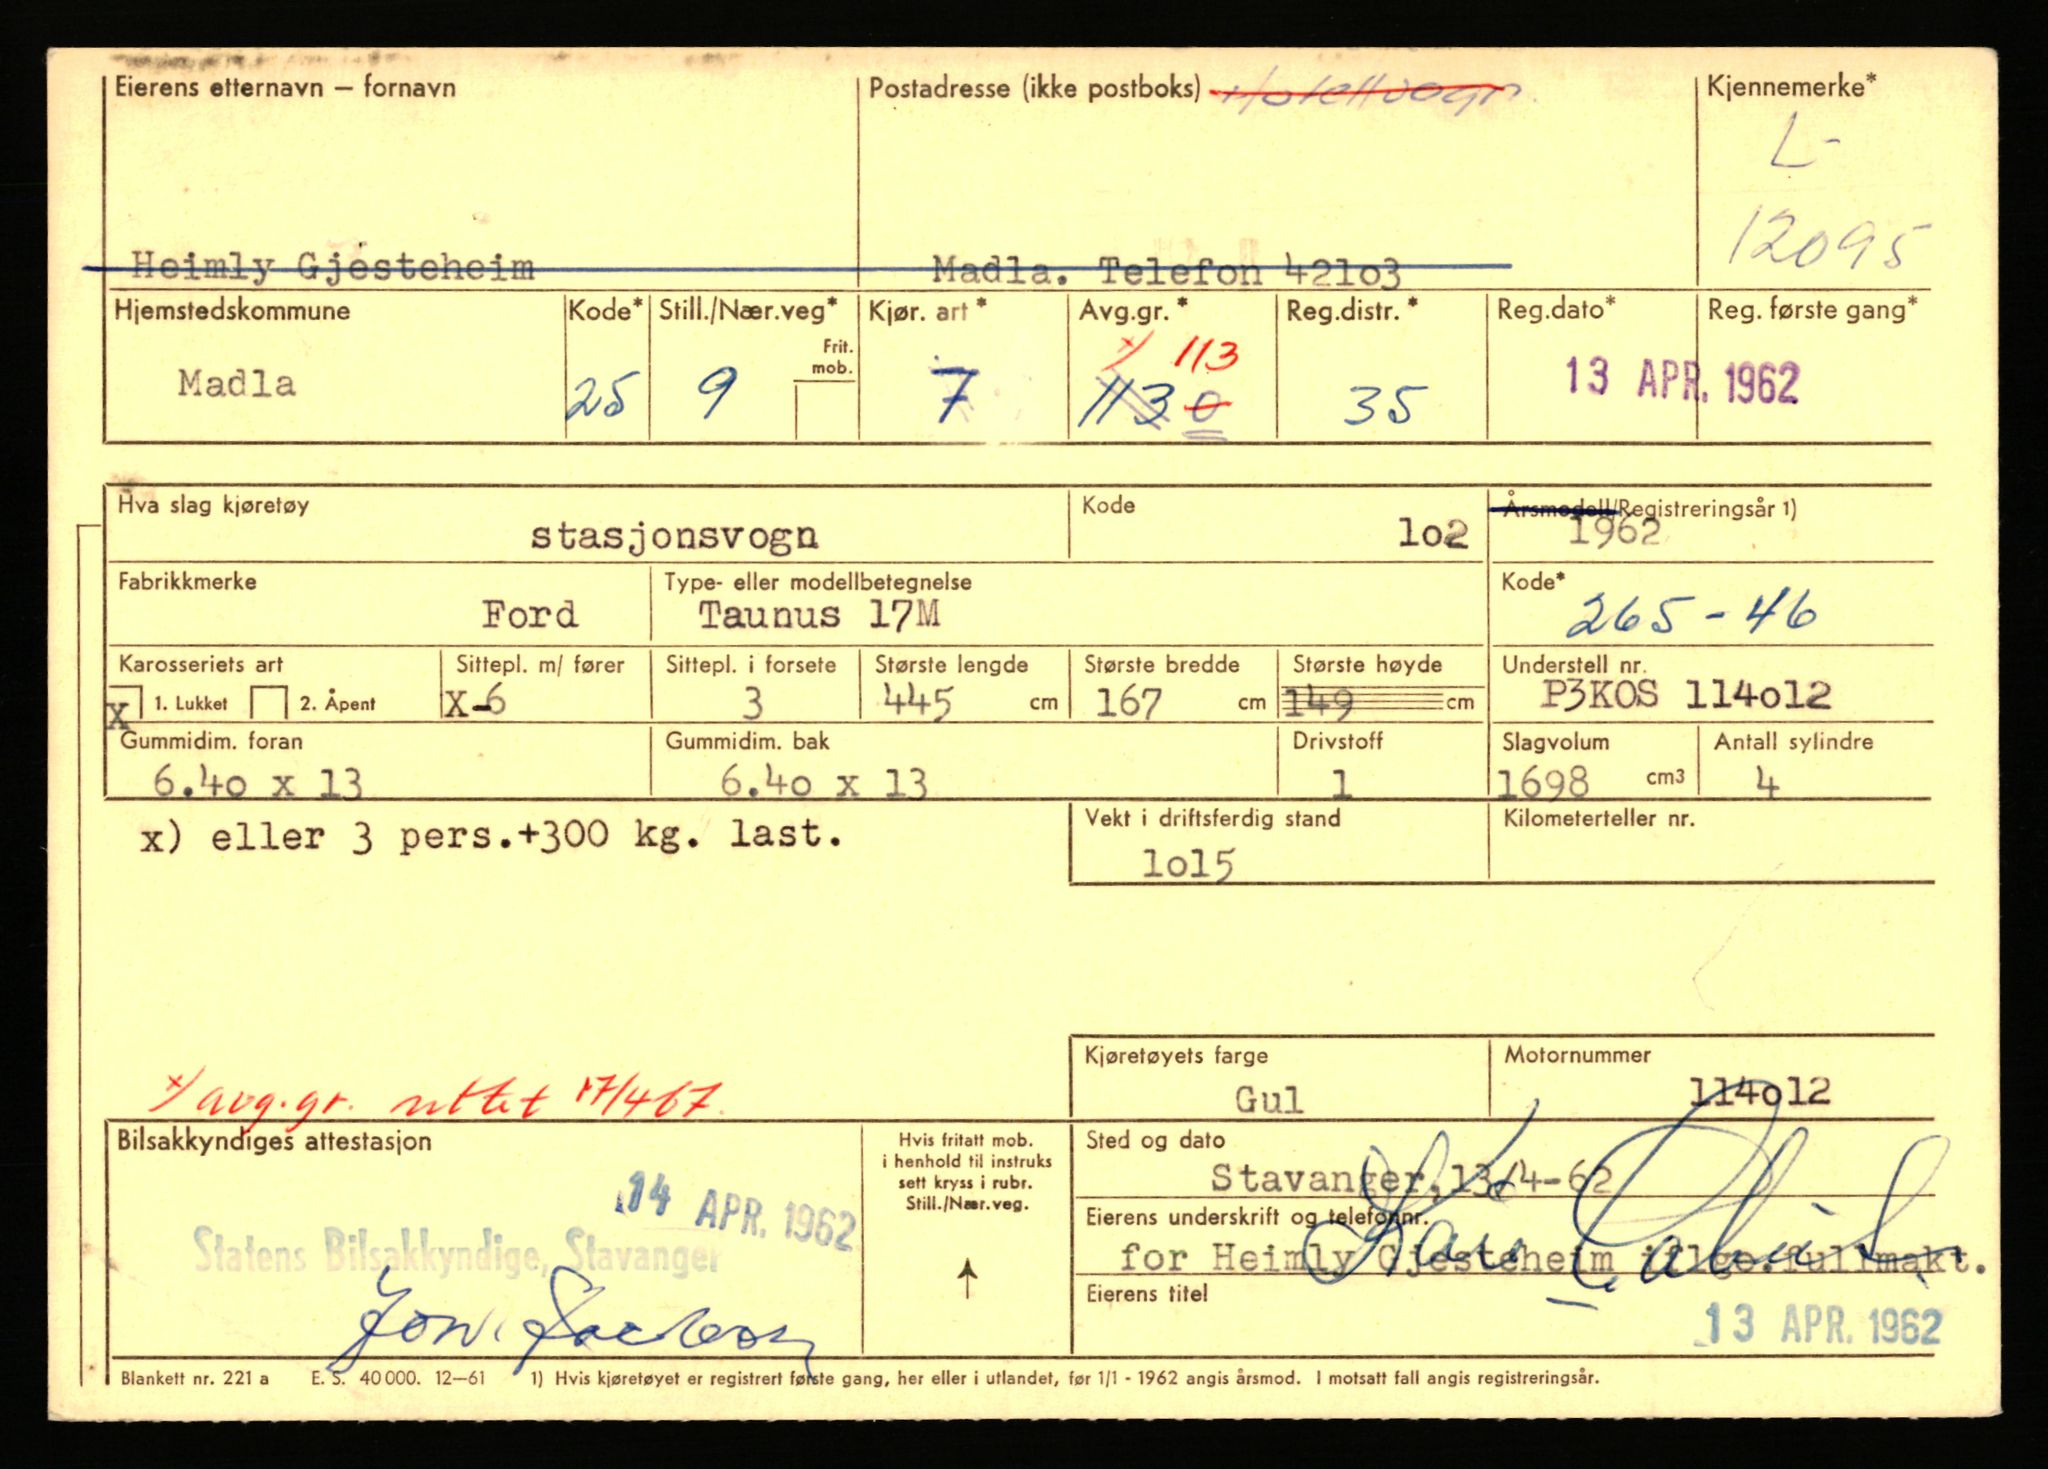 Eierens etternavn – fornavn
Postadresse (ikke postboks) Hotellvogn
Kjennemerke*
L-
12095
Heimly Gjesteheim
Madla. Telefon 421o3
Hjemstedskommune Kode* Still./Nær.veg* Kjør. art* Avg.gr.* Reg.distr.* Reg.dato* Reg. første gang*
Frit. mob.
x/ 113
Madla 25 9 7 113 0 35 13 APR. 1962
Hva slag kjøretøy Kode Årsmodell/Registreringsår 1)
stasjonsvogn lo2 1962
Fabrikkmerke Type- eller modellbetegnelse Kode*
Ford Taunus 17M 265-46
Karosseriets art Sittepl. m/ fører Sittepl. i forsete Største lengde Største bredde Største høyde Understell nr.
X 1. Lukket 2. Åpent X-6 3 445 cm 167 cm 149 cm P3KOS 114o12
Gummidim. foran Gummidim. bak Drivstoff Slagvolum Antall sylindre
6.4o x 13 6.4o x 13 1 1698 cm3 4
x) eller 3 pers.+300 kg. last.
Vekt i driftsferdig stand Kilometerteller nr.
lo15
Kjøretøyets farge Motornummer
Gul 114o12
x/ avg.gr. rettet 17/4 67.
Bilsakkyndiges attestasjon
Hvis fritatt mob.
i henhold til instruks
sett kryss i rubr.
Still./Nær.veg.
Sted og dato
Stavanger, 13/4-62
14 APR. 1962
Statens Bilsakkyndige, Stavanger
Eierens underskrift og telefonnr.
for Heimly Gjesteheim iflge.fullmakt.
Eierens titel
13 APR. 1962
Blankett nr. 221 a E. S. 40 000. 12–61 1) Hvis kjøretøyet er registrert første gang, her eller i utlandet, før 1/1 - 1962 angis årsmod. I motsatt fall angis registreringsår.